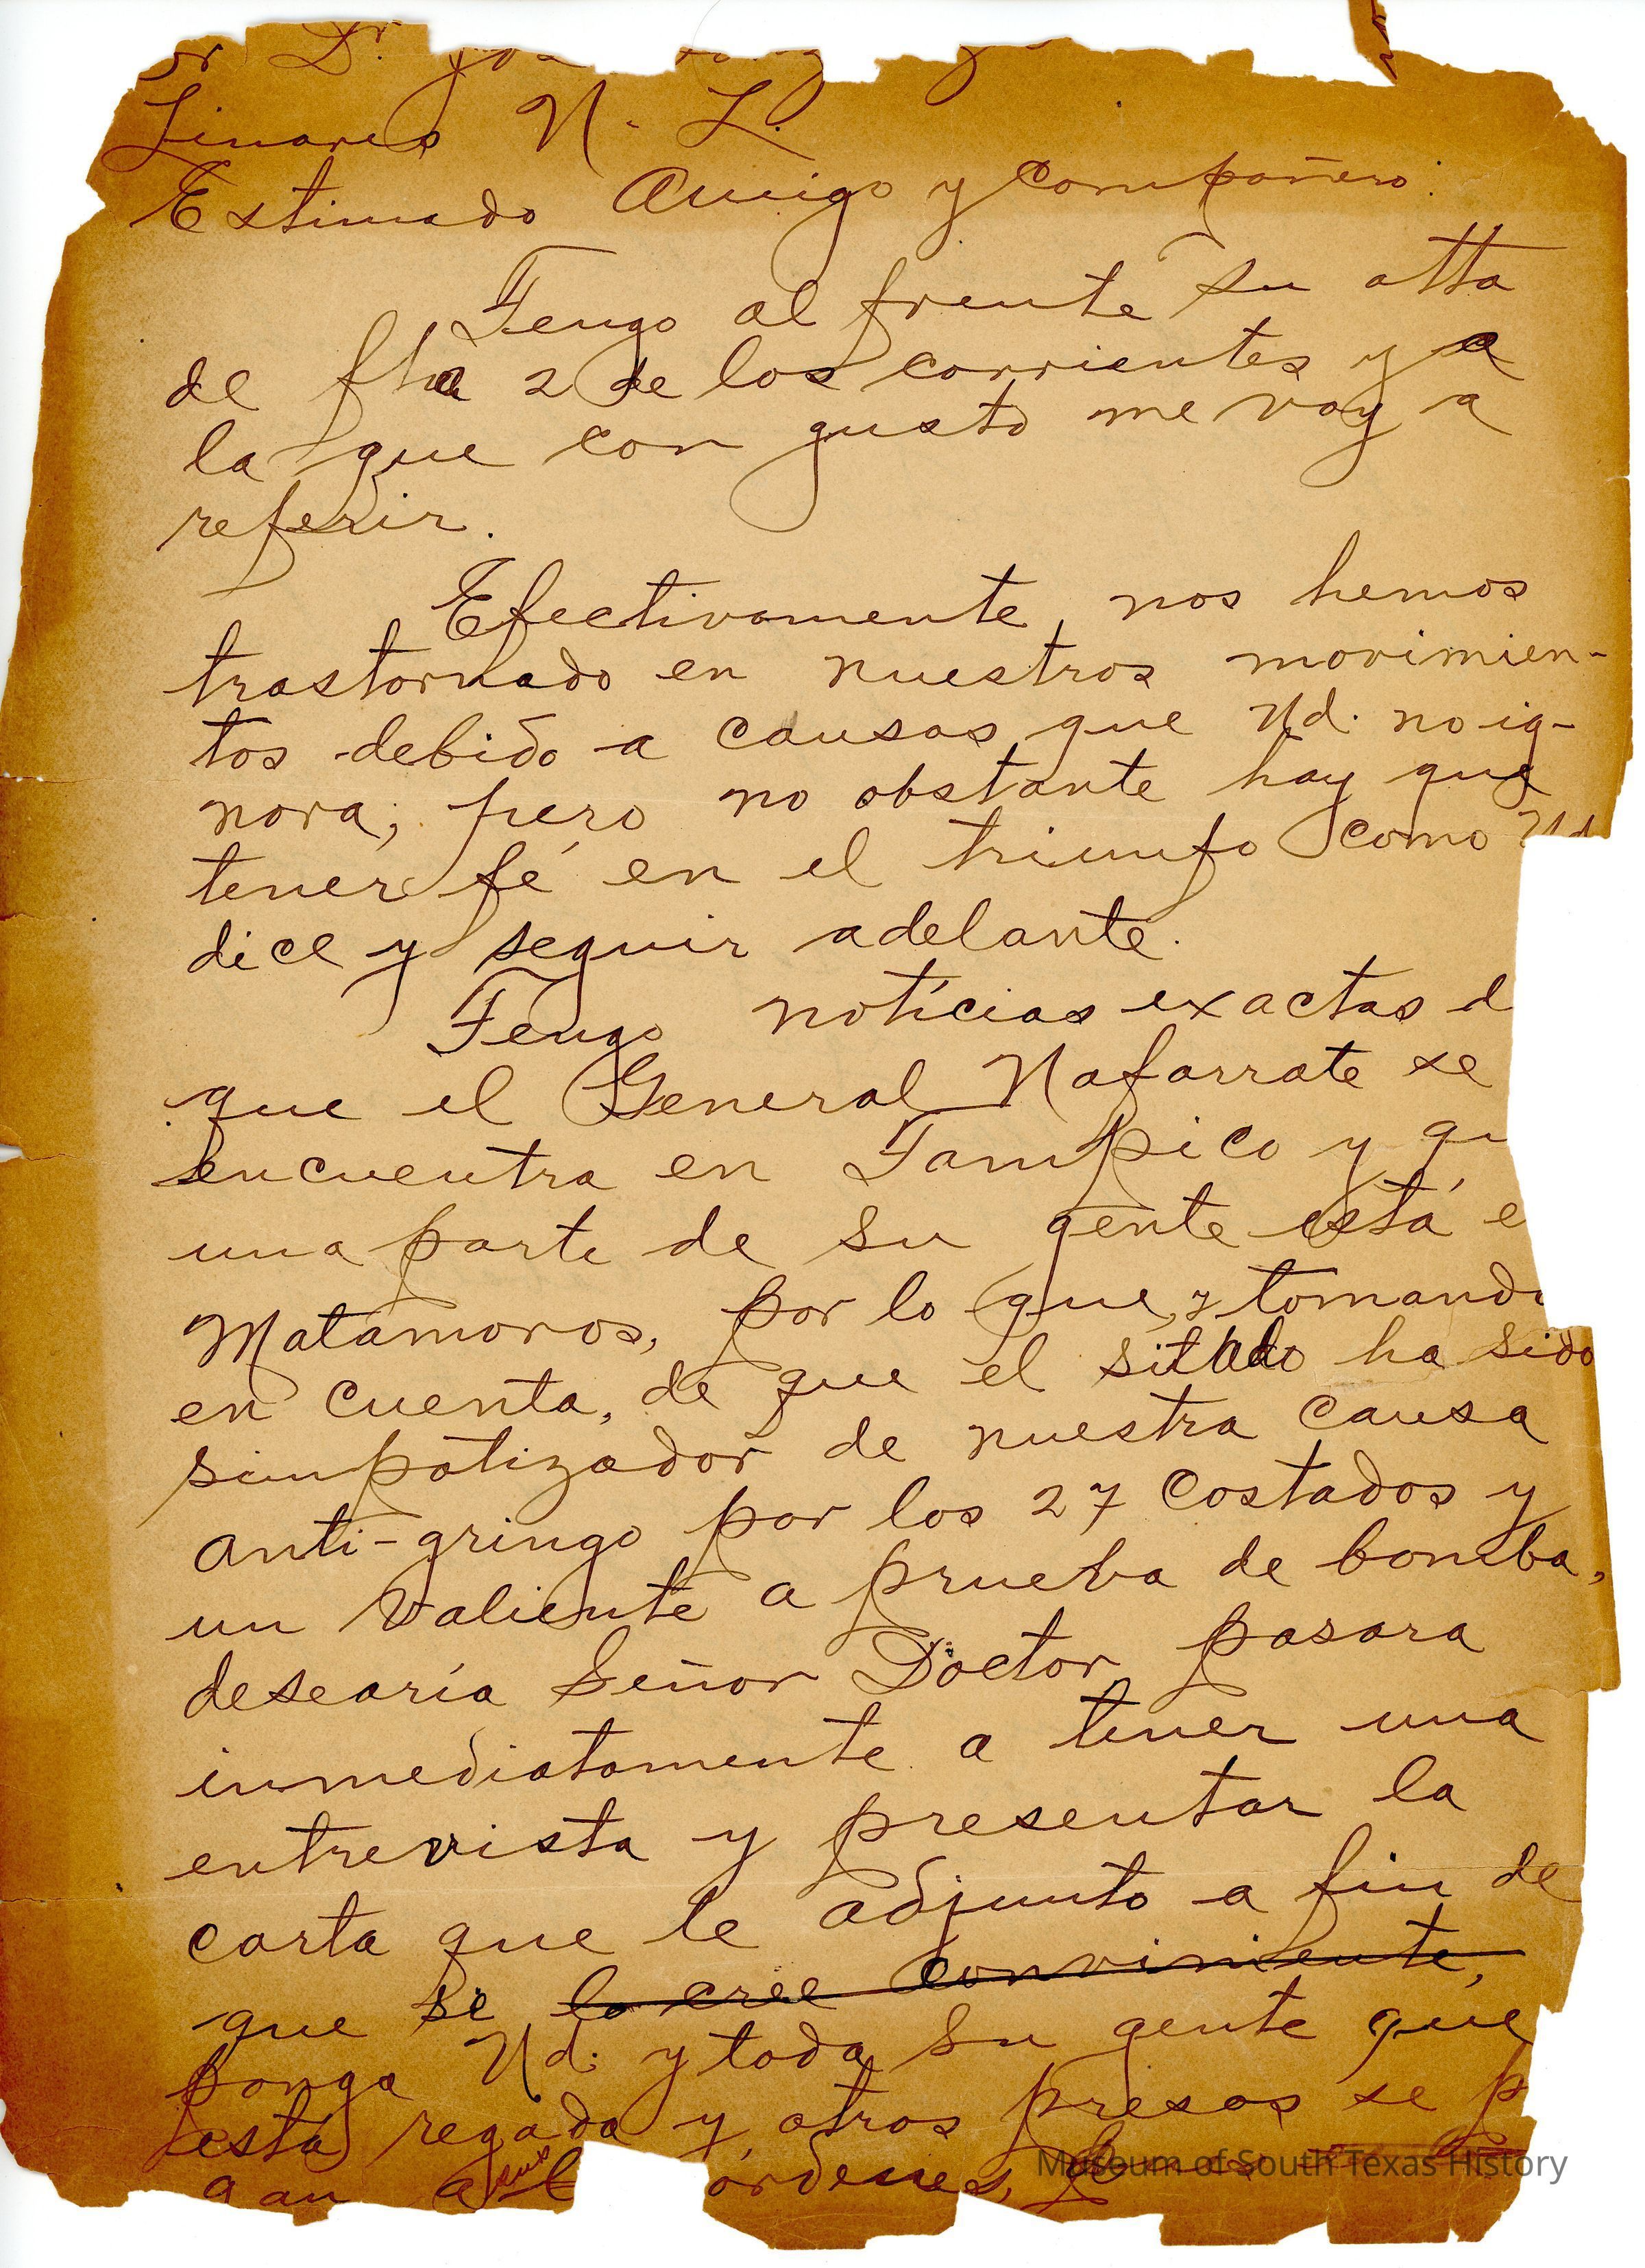 Sr Dr.
Linares N. L.
Estimado Amigo y Compañero:
Tengo al frente su atta
de fha 2 de los corrientes y a
la que con gusto me voy a
referir.
Efectivamente nos hemos
trastornado en nuestros movimien-
tos debido a causas que Ud. no ig-
nora; pero no obstante hay que
tener fé en el triunfo como Ud
dice y seguir adelante.
Tengo noticias exactas d
que el General Nafarrate se
encuentra en Tampico y qu
una parte de su gente está e
Matamoros, por lo que, y tomando
en cuenta, de que el sitado ha sido
simpatizador de nuestra causa
anti-gringo por los 27 costados y
un valiente a prueba de bomba,
desearía Señor Doctor pasara
inmediatamente a tener una
entrevista y presentar la
carta que le adjunto a fin de
que si lo cree conviniente,
ponga Ud. y toda su gente que
está regada y otros presos se p
gan a sus órdenes,
Museum of South Texas History